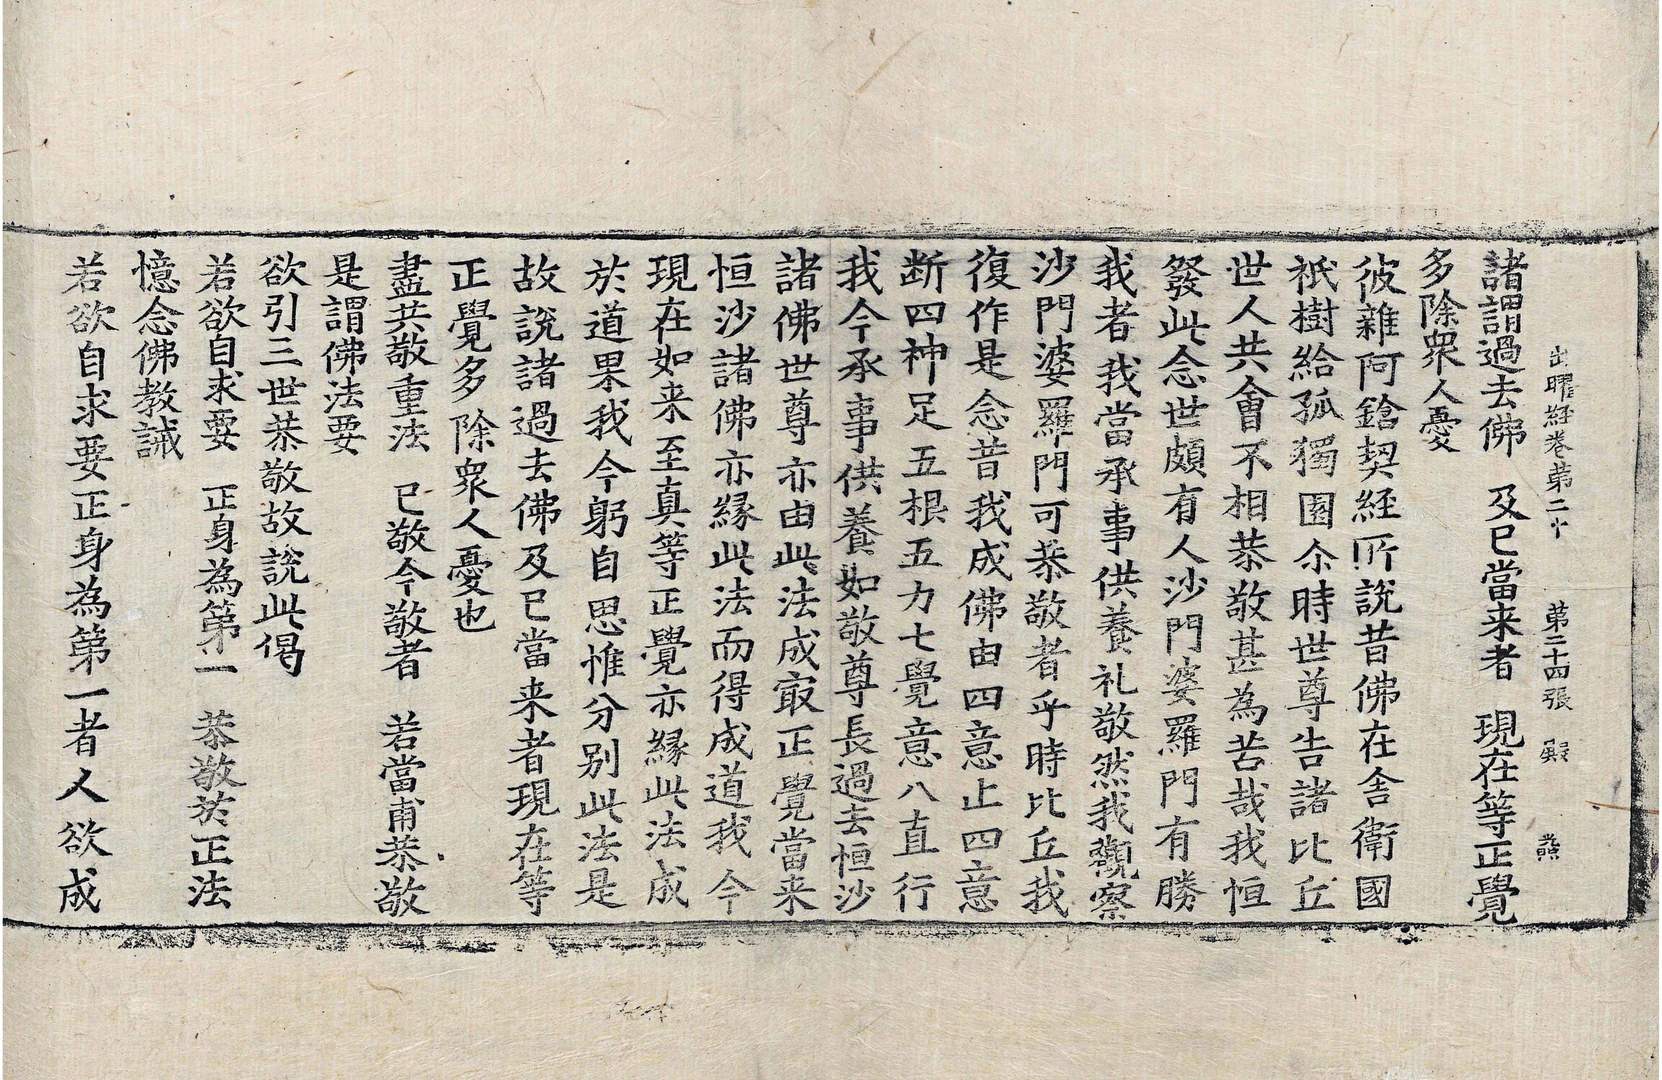 出曜経卷第二十　第三十四張　殿
諸謂過去佛　及已當来者　現在等正覺
多除衆人憂
彼雜阿鋡契経所說昔佛在舍衛國
祇樹給孤獨園尒時世尊告諸比丘
世人共會不相恭敬甚為苦哉我恒
發此念世頗有人沙門婆羅門有勝
我者我當承事供養礼敬然我觀察
沙門婆羅門可恭敬者乎時比丘我
復作是念昔我成佛由四意止四意
断四神足五根五力七覺意八直行
我今承事供養如敬尊長過去恒沙
諸佛世尊亦由此法成㝡正覺當来
恒沙諸佛亦縁此法而得成道我今
現在如来至真等正覺亦縁此法成
於道果我今躬自思惟分别此法是
故說諸過去佛及已當来者現在等
正覺多除衆人憂也
盡共敬重法　已敬今敬者　若當甫恭敬
是謂佛法要
欲引三世恭敬故說此偈
若欲自求要　正身為第一　恭敬於正法
憶念佛教誡
若欲自求要正身為第一者人欲成